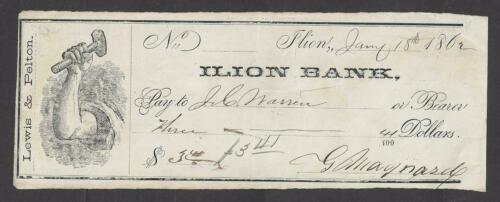 Lewis & Pelton.
No. Ilion, Jany 18th 1862
ILION BANK,
Pay to J. C. Warren or Bearer
Three 41/100 Dollars.
$ 3 41
G Maynard